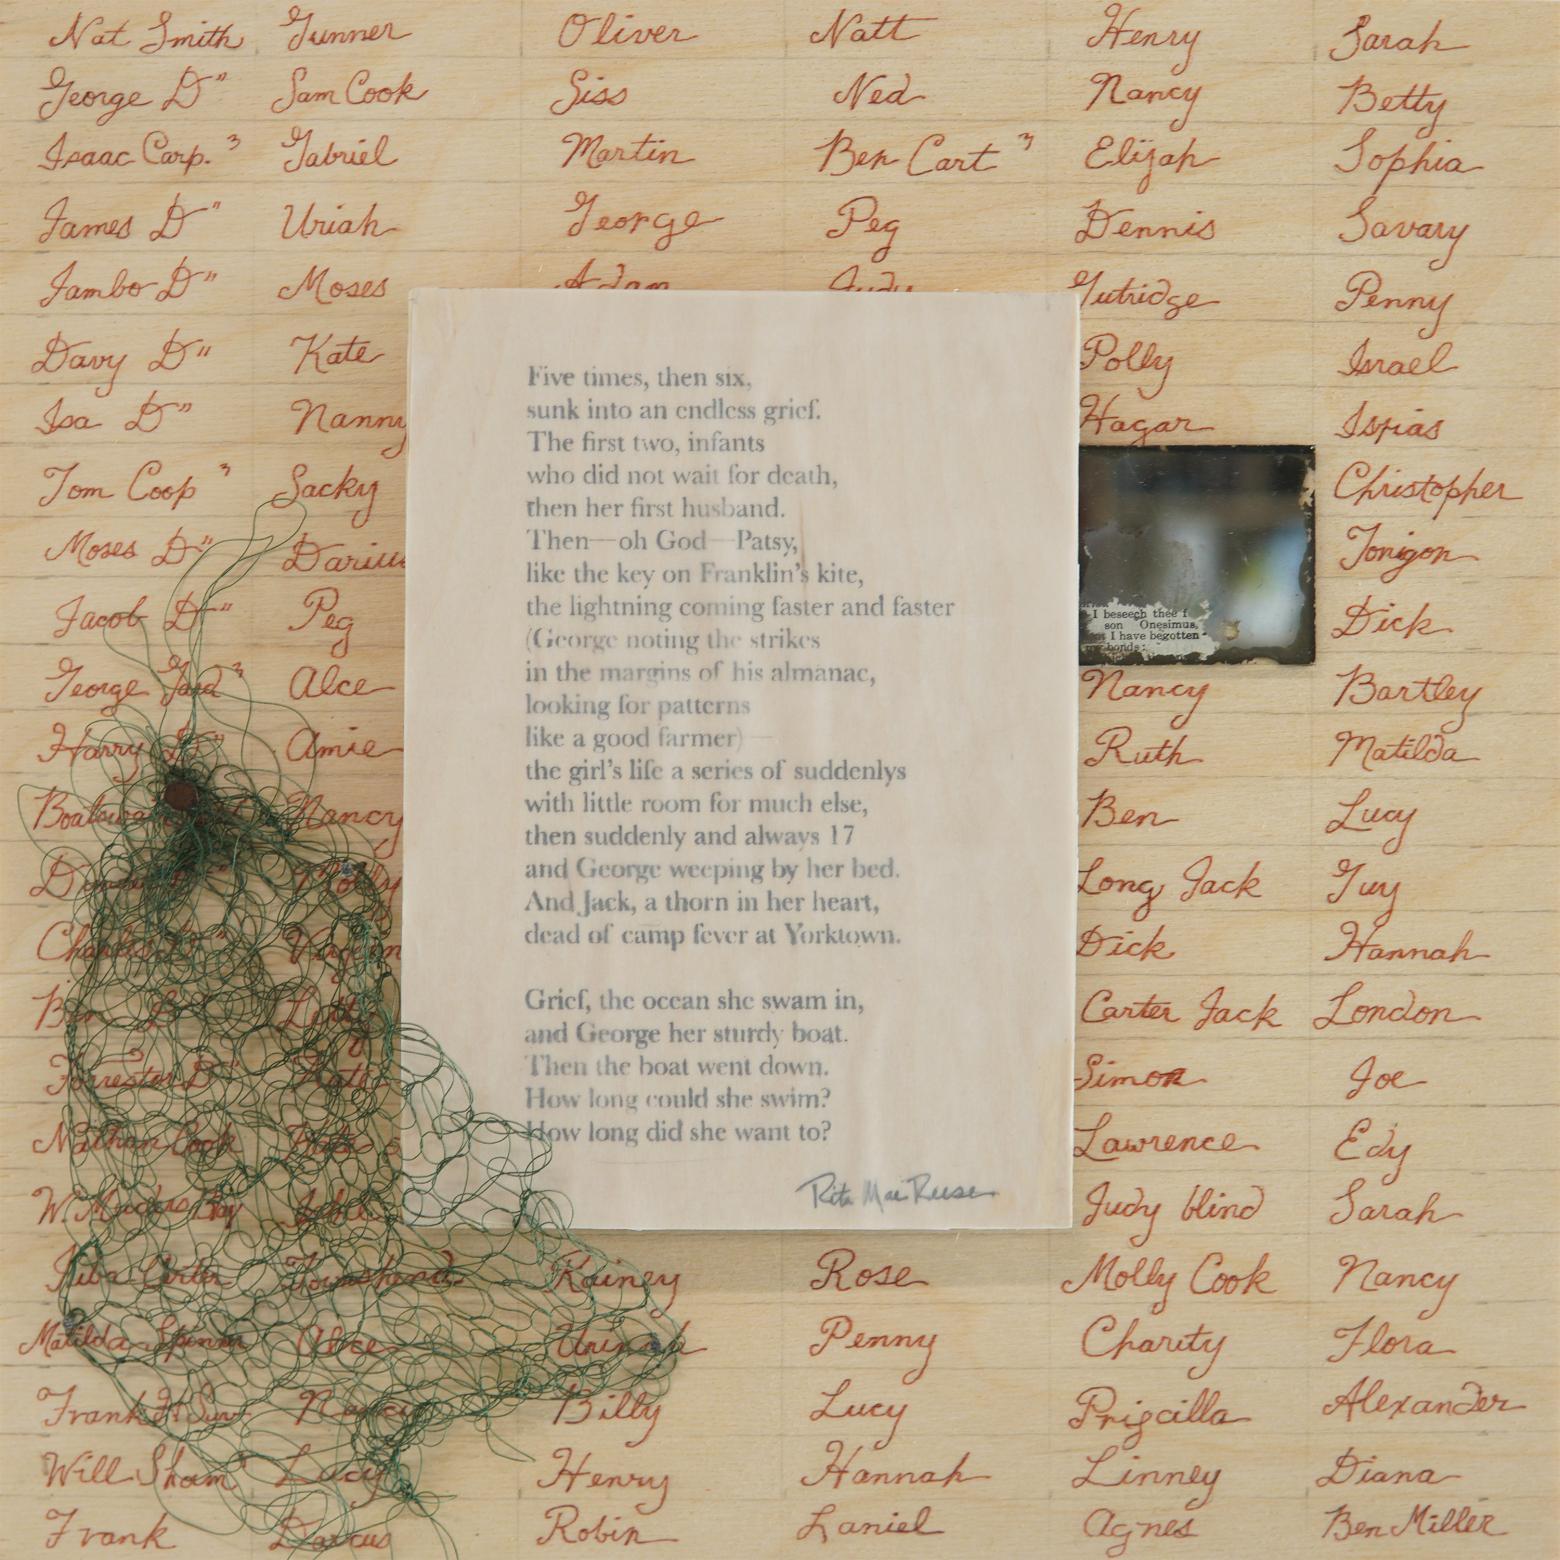 Nat Smith Gunner Oliver Natt Henry Sarah
George D" Sam Cook Siss Ned Nancy Betty
Isaac Carp. ³ Gabriel Martin Ben Cart ³ Elijah Sophia
James D" Uriah George Peg Dennis Savary
Jambo D" Moses Adam Judy Gutridge Penny
Davy D" Kate Polly Israel
Isa D" Nanny Hagar Ispias
Tom Coop ³ Sacky Christopher
Moses D" Darius Jonigon
Jacob D" Peg Dick
George Gard ³ Alce Nancy Bartley
Harry D" Amie Ruth Matilda
Nancy Ben Lucy
Molly Long Jack Guy
Charles D" Dick Hannah
Ben Carter Jack London
Forrester D" Simon Joe
Nathan Cook Lawrence Edy
Judy blind Sarah
Five times, then six,
sunk into an endless grief.
The first two, infants
who did not wait for death,
then her first husband.
Then—oh God—Patsy,
like the key on Franklin's kite,
the lightning coming faster and faster
(George noting the strikes
in the margins of his almanac,
looking for patterns
like a good farmer)—
the girl's life a series of suddenlys
with little room for much else,
then suddenly and always 17
and George weeping by her bed.
And Jack, a thorn in her heart,
dead of camp fever at Yorktown.
Grief, the ocean she swam in,
and George her sturdy boat.
Then the boat went down.
How long could she swim?
How long did she want to?
Rita Mae Reese
I beseech thee f
son Onesimus,
I have begotten
bonds:
Townshend Rainey Rose Molly Cook Nancy
Matilda Spinner Alce Penny Charity Flora
Frank Nancy Billy Lucy Priscilla Alexander
Will Sham Lucy Henry Hannah Linney Diana
Frank Darcus Robin Laniel Agnes Ben Miller